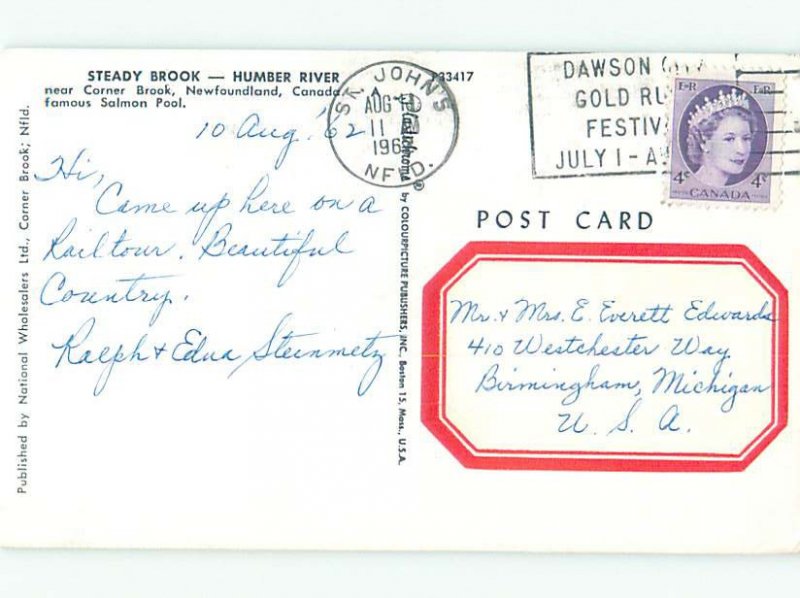 STEADY BROOK — HUMBER RIVER
near Corner Brook, Newfoundland, Canada
famous Salmon Pool.
10 Aug. '62
Hi,
Came up here on a
Railtour. Beautiful
Country.
Ralph & Edna Steinmetz
Published by National Wholesalers Ltd., Corner Brook, Nfld.
by COLOURPICTURE PUBLISHERS, INC., Boston 15, Mass., U.S.A.
33417
ST. JOHN'S
AUG
11
NFLD.
DAWSON
GOLD
FESTIV
JULY 1 - A
E R E R
4¢ 4¢
CANADA
POST CARD
Mr. & Mrs. E. Everett Edwards
410 Westchester Way
Birmingham, Michigan
U. S. A.